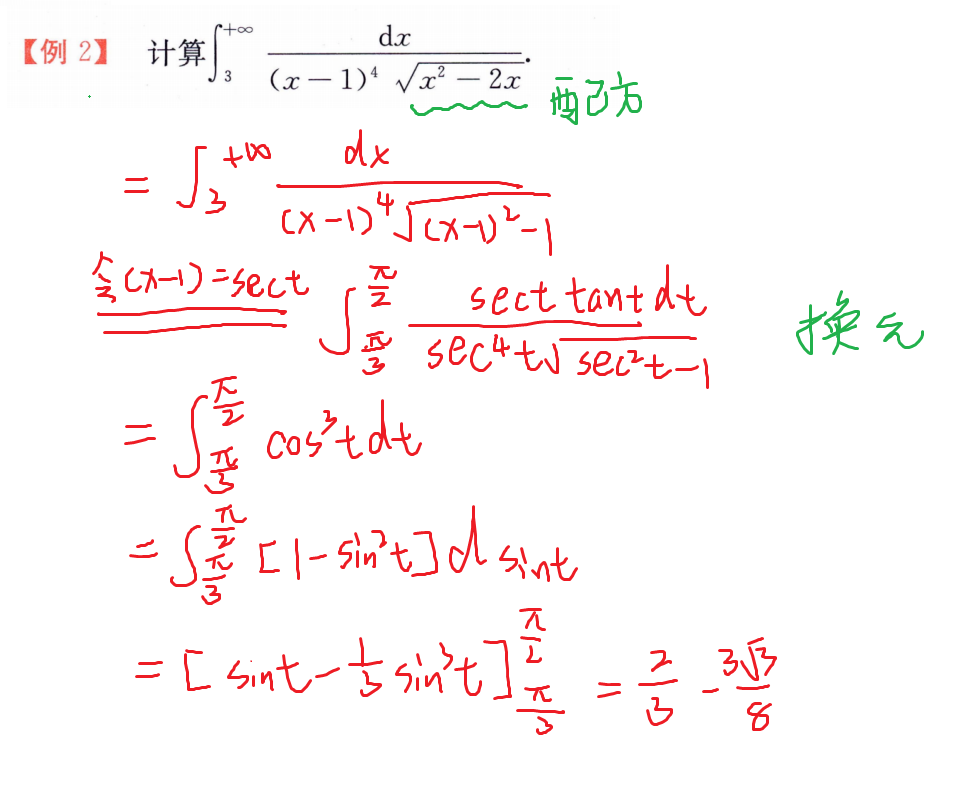 【例 2】 计算∫_3^{+∞} dx / ((x-1)^4 √(x^2-2x)).
配方
= ∫_3^{+∞} dx / ((x-1)^4 √((x-1)^2-1))
令(x-1)=sect ∫_{π/3}^{π/2} sect tant dt / (sec^4 t √(sec^2 t-1)) 换元
= ∫_{π/3}^{π/2} cos^3 t dt
= ∫_{π/3}^{π/2} [1-sin^2 t] d sint
= [sint - 1/3 sin^3 t]_{π/3}^{π/2} = 2/3 - 3√3/8